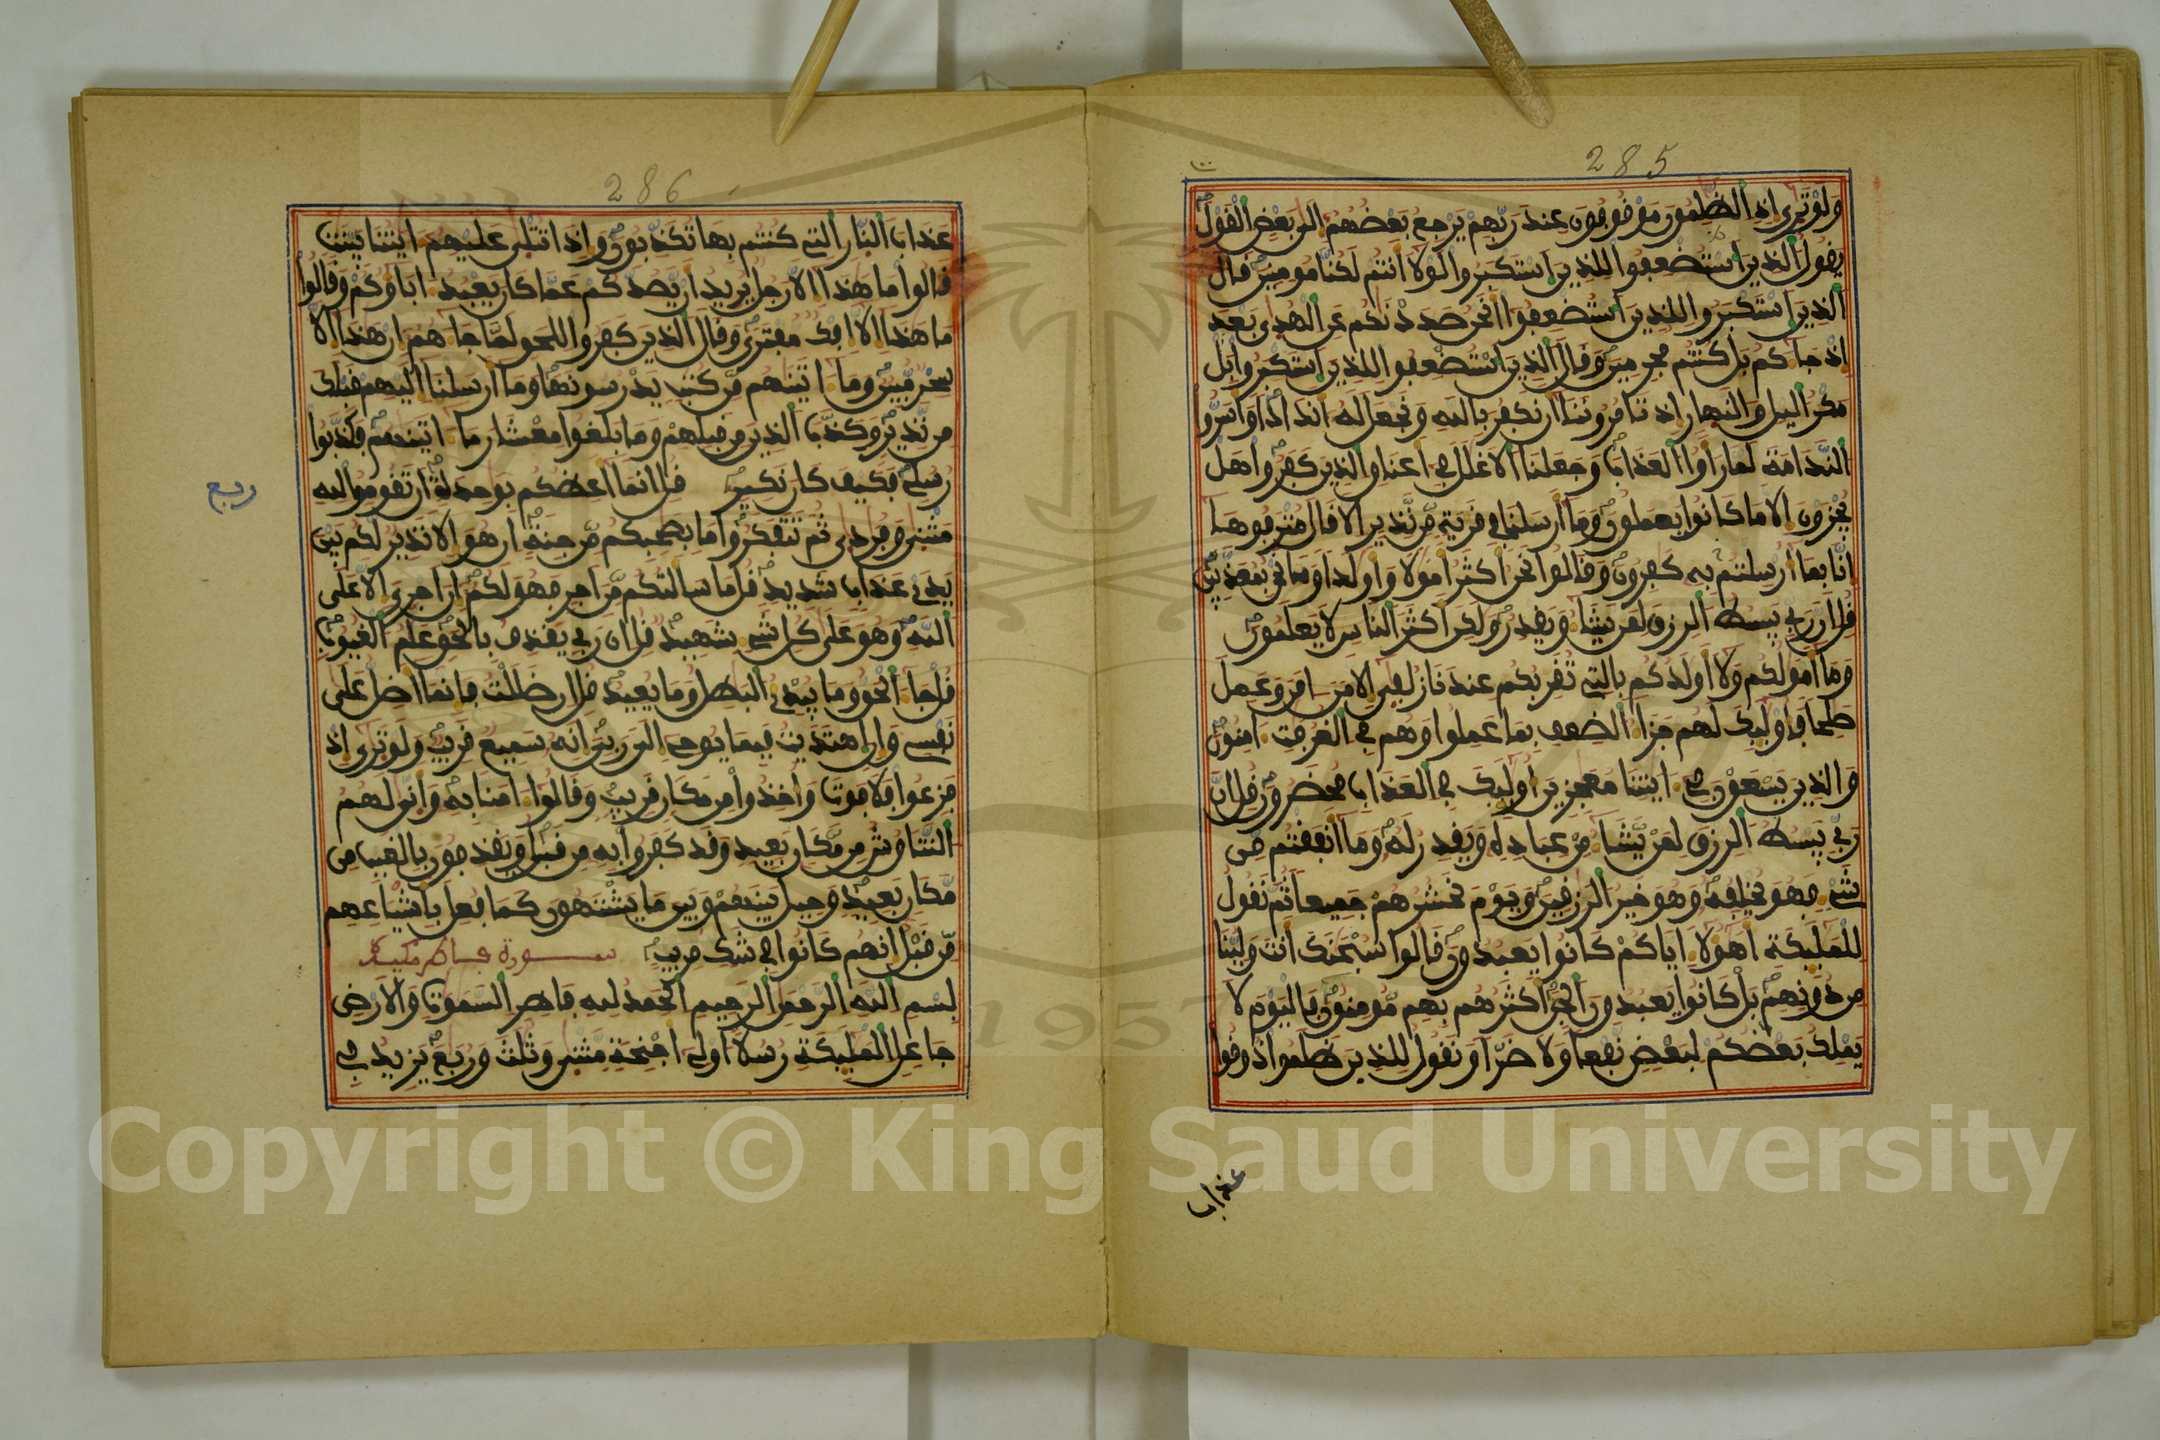 285
ولو ترى إذ الظلمون موقوفون عند ربهم يرجع بعضهم الى بعض القول
يقول الذين استضعفوا للذين استكبروا لولا انتم لكنا مومنين قال
الذين استكبروا للذين استضعفوا انحن صددنكم عن الهدى بعد
اذ جاكم بل كنتم مجرمين وقال الذين استضعفوا للذين استكبروا بل
مكر اليل والنهار اذ تامروننا ان نكفر بالله ونجعل له اندادا واسروا
الندامة لما راوا العذاب وجعلنا الاغلل في اعناق الذين كفروا هل
يجزون الا ما كانوا يعملون وما ارسلنا في قرية من نذير الا قال مترفوها
انا بما ارسلتم به كفرون وقالوا نحن اكثر امولا واولدا وما نحن بمعذبين
قل ان ربي يبسط الرزق لمن يشا ويقدر ولكن اكثر الناس لا يعلمون
وما امولكم ولا اولدكم بالتي تقربكم عندنا زلفى الا من امن وعمل
صلحا فاوليك لهم جزا الضعف بما عملوا وهم في الغرفت امنون
والذين يسعون في ايتنا معجزين اوليك في العذاب محضرون قل ان
ربي يبسط الرزق لمن يشا من عباده ويقدر له وما انفقتم من
شي فهو يخلفه وهو خير الرزقين ويوم نحشرهم جميعا ثم نقول
للمليكة اهولا اياكم كانوا يعبدون قالوا سبحنك انت ولينا
من دونهم بل كانوا يعبدون الجن اكثرهم بهم مومنون فاليوم لا
يملك بعضكم لبعض نفعا ولا ضرا ونقول للذين ظلموا ذوقوا
عذاب
286
عذاب النار التي كنتم بها تكذبون واذا تتلى عليهم ايتنا بينت
قالوا ما هذا الا رجل يريد ان يصدكم عما كان يعبد اباوكم وقالوا
ما هذا الا افك مفترى وقال الذين كفروا للحق لما جاهم ان هذا الا
سحر مبين وما اتينهم من كتب يدرسونها وما ارسلنا اليهم قبلك
من نذير وكذب الذين من قبلهم وما بلغوا معشار ما اتينهم فكذبوا
رسلي فكيف كان نكير قل انما اعظكم بوحدة ان تقوموا لله
ربع
مثنى وفردى ثم تتفكروا ما بصحبكم من جنة ان هو الا نذير لكم بين
يدي عذاب شديد قل ما سالتكم من اجر فهو لكم ان اجري الا على
الله وهو على كل شي شهيد قل ان ربي يقذف بالحق علم الغيوب
قل جا الحق وما يبدي البطل وما يعيد قل ان ضللت فانما اضل على
نفسي وان اهتديت فبما يوحي الي ربي انه سميع قريب ولو ترى اذ
فزعوا فلا فوت واخذوا من مكان قريب وقالوا امنا به وانى لهم
التناوش من مكان بعيد وقد كفروا به من قبل ويقذفون بالغيب من
مكان بعيد وحيل بينهم وبين ما يشتهون كما فعل باشياعهم
من قبل انهم كانوا في شك مريب سورة فاطر مكية
بسم الله الرحمن الرحيم الحمد لله فاطر السموت والارض
جاعل المليكة رسلا اولي اجنحة مثنى وثلث وربع يزيد في
Copyright © King Saud University
1957